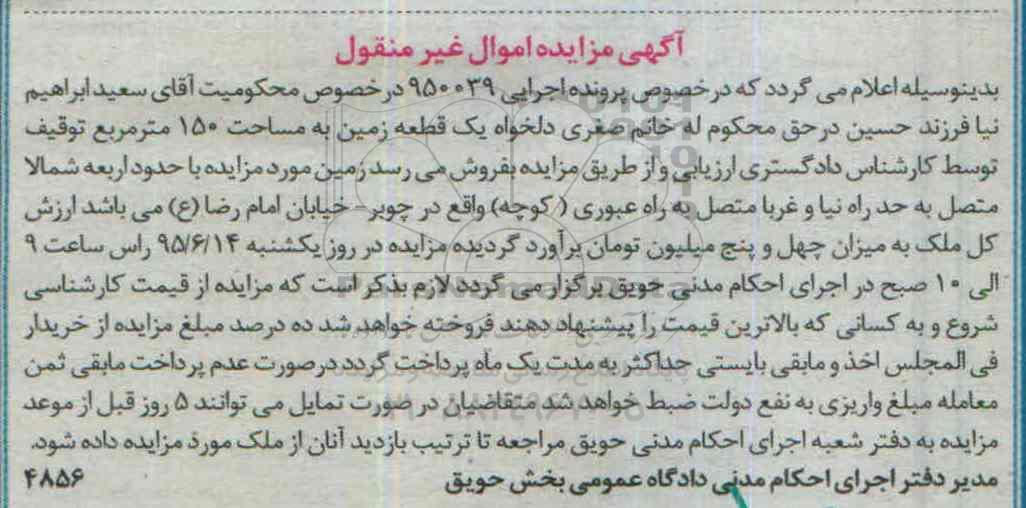 آگهی مزایده اموال غیر منقول
بدینوسیله اعلام می گردد که درخصوص پرونده اجرایی ۹۵۰۰۳۹ در خصوص محکومیت آقای سعید ابراهیم
نیا فرزند حسین در حق محکوم له خانم صغری دلخواه یک قطعه زمین به مساحت ۱۵۰ مترمربع توقیف
توسط کارشناس دادگستری ارزیابی و از طریق مزایده بفروش می رسد زمین مورد مزایده با حدود اربعه شمالا
متصل به حد راه نیا و غربا متصل به راه عبوری ( کوچه) واقع در چوبر- خیابان امام رضا (ع) می باشد ارزش
کل ملک به میزان چهل و پنج میلیون تومان برآورد گردیده مزایده در روز یکشنبه ۹۵/۶/۱۴ راس ساعت ۹
الی ۱۰ صبح در اجرای احکام مدنی حویق برگزار می گردد لازم بذکر است که مزایده از قیمت کارشناسی
شروع و به کسانی که بالاترین قیمت را پیشنهاد دهند فروخته خواهد شد ده درصد مبلغ مزایده از خریدار
فی المجلس اخذ و مابقی بایستی جداکثر به مدت یک ماه پرداخت گردد در صورت عدم پرداخت مابقی ثمن
معامله مبلغ واریزی به نفع دولت ضبط خواهد شد متقاضیان در صورت تمایل می توانند ۵ روز قبل از موعد
مزایده به دفتر شعبه اجرای احکام مدنی حویق مراجعه تا ترتیب بازدید آنان از ملک مورد مزایده داده شود.
مدیر دفتر اجرای احکام مدنی دادگاه عمومی بخش حویق ۴۸۵۶